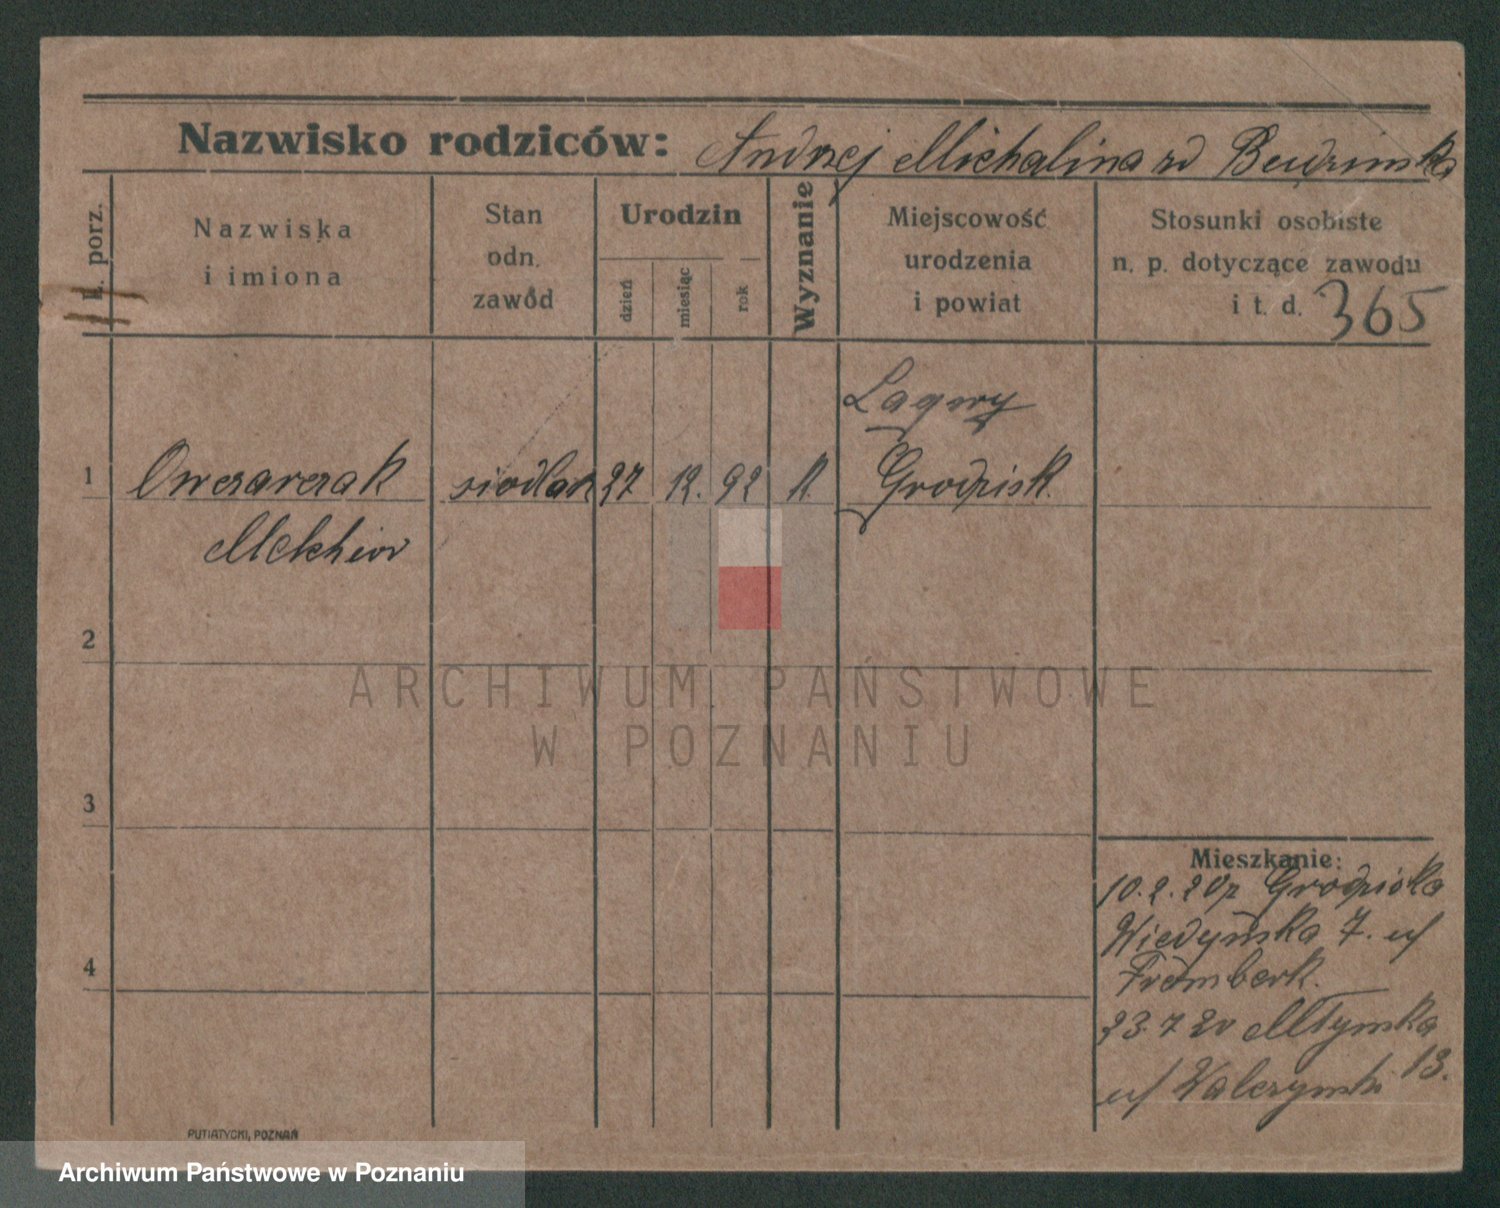 Nazwisko rodziców: Andrzej Michalina zd Będzinska
L. porz.
Nazwiska
i imiona
Stan
odn.
zawód
Urodzin
dzień
miesiąc
rok
Wyznanie
Miejscowość
urodzenia
i powiat
Stosunki osobiste
n. p. dotyczące zawodu
i t. d. 365
Łagwy
1 Owczarczak siodlarz 27 12. 92 K. Grodzisk.
Melchior
2
ARCHIWUM PAŃSTWOWE
W POZNANIU
3
Mieszkanie:
10.2.20 Grodziska
4
Młyńska 7. u/
Fromberk.
23.7 20 Młynska
13.
u/ Walczynski
PUTIATYCKI, POZNAŃ
Archiwum Państwowe w Poznaniu